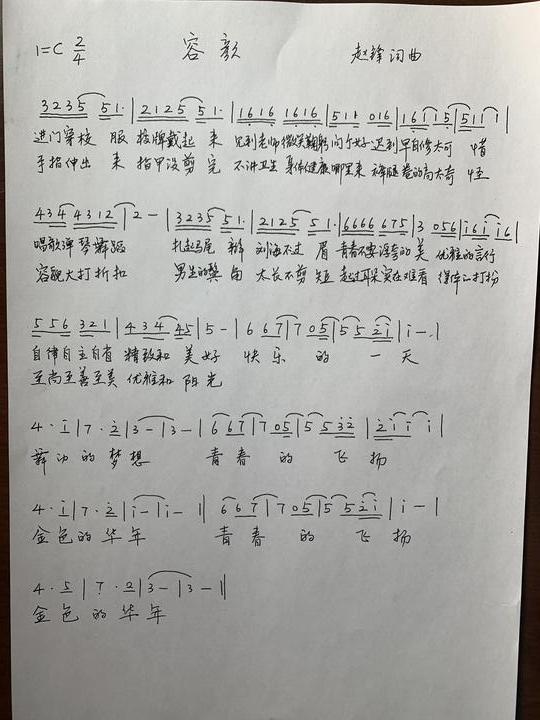 1=C 2/4 容颜 赵锋词曲
3 2 3 5 5 1· | 2 1 2 5 5 1· | 1 6 1 6 1 6 1 6 | 5 1 1 0 1 6 | 1 6 i i 5 | 5 1 1 i |
进门穿校 服 校牌戴起 来 见到老师微笑鞠躬问个好 迟到早自修太可 惜
手指伸出 来 指甲没剪 完 不讲卫生 身体健康哪里来 裤腿卷的高太奇 怪
4 3 4 4 3 1 2 | 2 - | 3 2 3 5 5 1· | 2 1 2 5 5 1· | 6 6 6 6 6 7 5 | 3 0 5 6 | i 6 i i 6 |
唱歌弹琴舞蹈 扎起马尾 辫 刘海不过 眉 青春不要浮夸的 美 优雅的言行
容貌大打折扣 男生的鬓 角 太长不剪 短 起过耳朵实在难看 得体的打扮
5 5 6 3 2 1 | 4 3 4 4 5 | 5 - | 6 6 7 | 7 0 5 | 5 5 2 i | i - ·|
自律自主自省 精致和 美好 快 乐 的 一 天
至尚至善至美 优雅和 阳光
4 · i | 7 · 2 | 3 - | 3 - | 6 6 7 | 7 0 5 | 5 5 3 2 | 2 i i i |
舞动的梦想 青春 的 飞 扬
4 · i | 7 · 2 | i - | i - || 6 6 7 | 7 0 5 | 5 5 2 i | i - |
金色的华年 青春 的 飞 扬
4 · 5 | 7 · 2 | 3 - | 3 - ||
金色 的 华年